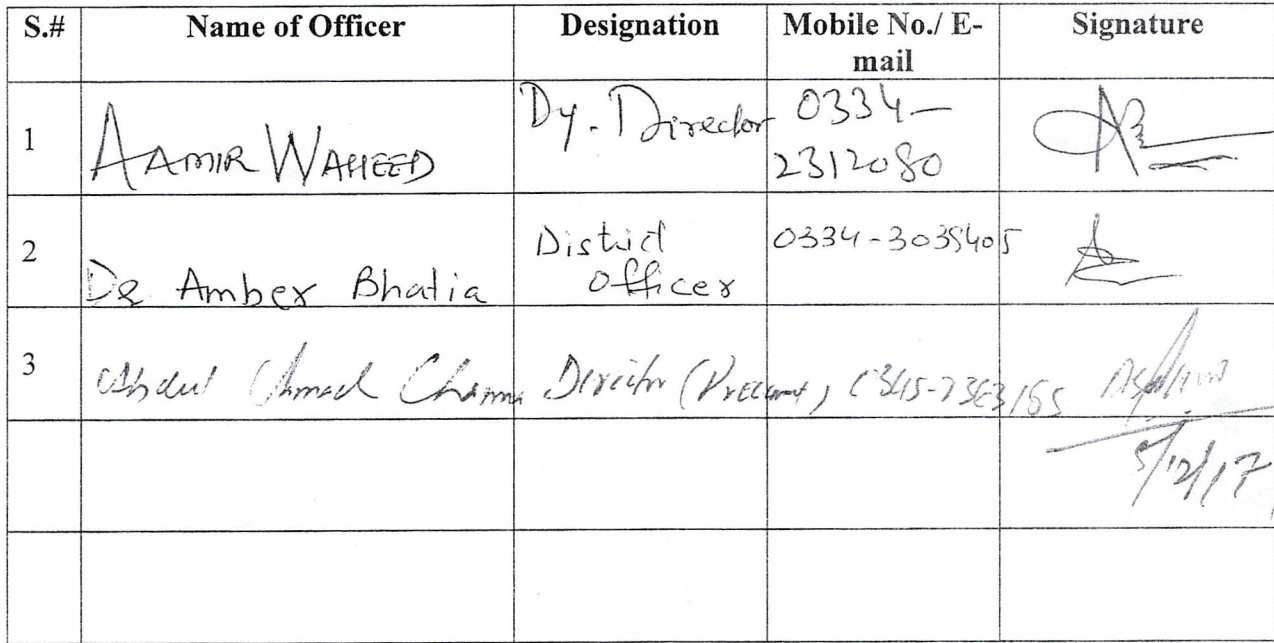 S.# Name of Officer Designation Mobile No./ E-
mail Signature
1 AAMIR WAHEED Dy. Director 0334-
2312080
2 Dr Amber Bhatia District
Officer 0334-3035405
3 Abdul Ahmed Channa Director
5/12/17